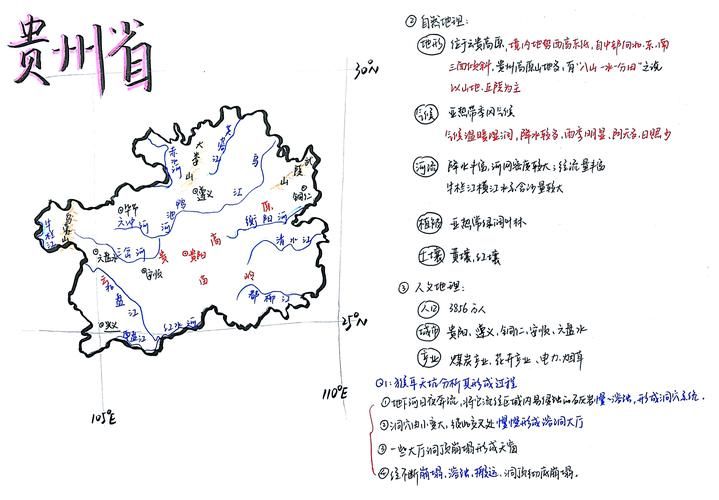 贵州省
30°N
25°N
105°E
110°E
赤水河
大娄山
芙蓉江
乌江
武陵山
铜仁
遵义
毕节
六冲河
鸭池河
衡阳河
清水江
都柳江
牛栏江
乌蒙山
六盘水
三岔河
安顺
贵阳
云贵高原
苗岭
北盘江
南盘江
红水河
兴义
② 自然地理:
地形 位于云贵高原,境内地势西高东低,自中部向北、东、南
三面倾斜,贵州高原山地多,有“八山一水一分田”之说
以山地、丘陵为主
气候 亚热带季风气候
气候温暖湿润,降水较多,雨季明显,阴天多,日照少
河流 降水丰富,河网密度较大;径流量丰富
牛栏江横江水系含沙量较大
植被 亚热带常绿阔叶林
土壤 黄壤,红壤
③ 人文地理:
人口 3856万人
城市 贵阳、遵义、铜仁、安顺、六盘水
产业 煤炭产业、花卉产业、电力、烟草
Q1:猴耳天坑分析其形成过程
①地下河日夜奔流,将它流经区域内易侵蚀的石灰岩慢慢溶蚀,形成洞穴系统.
②洞穴由小变大,彼此交叉处慢慢形成溶洞大厅
③一些大厅洞顶崩塌形成天窗
④经不断崩塌,溶蚀,搬运,洞顶彻底崩塌.